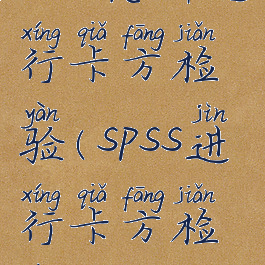 xíng qiǎ fāng jiǎn
行卡方检
yàn jìn
验(SPSS进
xíng qiǎ fāng jiǎn
行卡方检